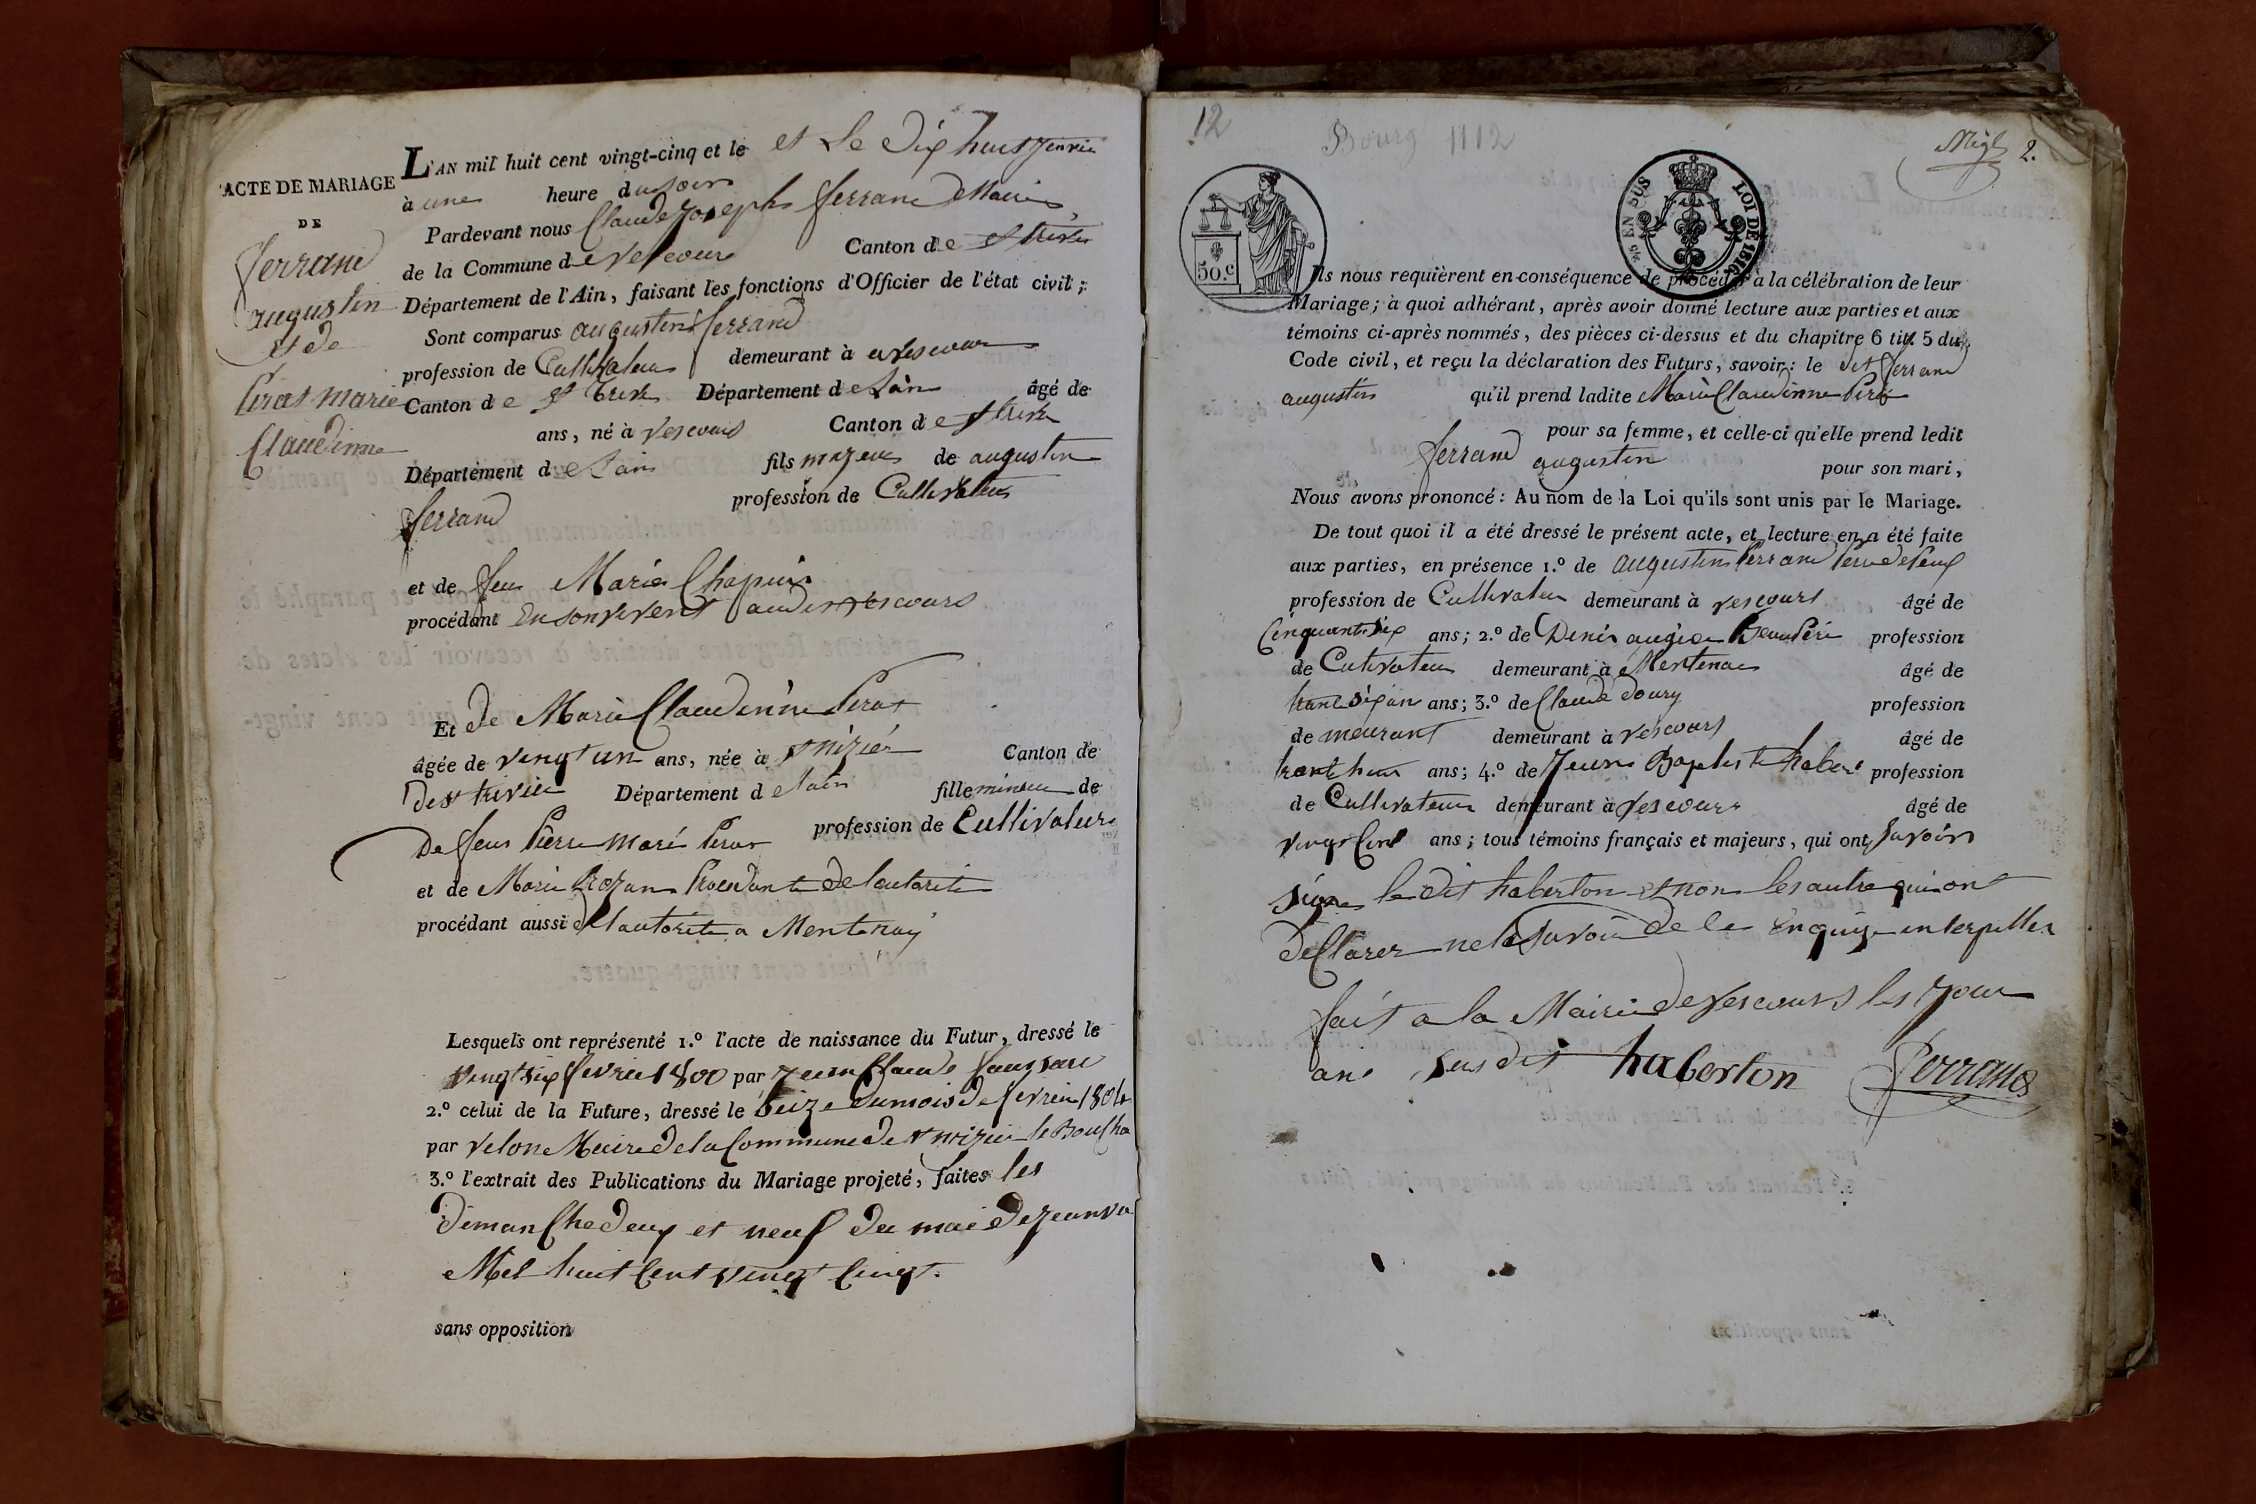 ACTE DE MARIAGE
DE
ferrand
augustin
et de
Perat marie
Claudinne
L'AN mil huit cent vingt-cinq et le et le dix huit
à une heure du soir
Pardevant nous Claude Joseph ferrand Maire
de la Commune de vescour Canton de st trivier
Département de l'Ain, faisant les fonctions d'Officier de l'état civil;
Sont comparus augustin ferrand
profession de Cultivateur demeurant à a vescour
Canton de st Département de lain âgé de
ans, né à vescours Canton de
Département de lain fils mazeur de augustin
ferrand profession de Cultivateur
et de feu Marie Chapuis
procédant En son vivent audit vescours
Et de Marie Claudinne Perat
âgée de vingt un ans, née à st nizier Canton de
De st trivier Département de lain fille mineur de
De feu Pierre Marie Perat profession de Cultivateur
et de Marie de lautorite
procédant aussi de lautorite a Mentenay
Lesquels ont représenté 1.º l'acte de naissance du Futur, dressé le
vingt six fevrier 1800 par Jean Claude
2.º celui de la Future, dressé le seize du mois de fevrier 1804
par velon Maire de la Commune de st nizier le Boucho
3.º l'extrait des Publications du Mariage projeté, faites les
dimanche deux et neuf du mois de
Mil huit Cent vingt Cinq
sans opposition
12
Bourg 1112
2.
50.c
EN SUS
LOI DE 1816
Ils nous requièrent en conséquence de procéder à la célébration de leur
Mariage; à quoi adhérant, après avoir donné lecture aux parties et aux
témoins ci-après nommés, des pièces ci-dessus et du chapitre 6 tit. 5 du
Code civil, et reçu la déclaration des Futurs, savoir: le dit ferrand
augustin qu'il prend ladite Marie Claudinne
pour sa femme, et celle-ci qu'elle prend ledit
ferrand augustin pour son mari,
Nous avons prononcé: Au nom de la Loi qu'ils sont unis par le Mariage.
De tout quoi il a été dressé le présent acte, et lecture en a été faite
aux parties, en présence 1.º de augustin ferrand
profession de Cultivateur demeurant à vescours âgé de
Cinquante six ans; 2.º de Denis profession
de Cultivateur demeurant à Mentenay âgé de
ans; 3.º de Claude doury profession
de meurant demeurant à vescours âgé de
ans; 4.º de Jean Baptiste profession
de Cultivateur demeurant à vescours âgé de
ans; tous témoins français et majeurs, qui ont savoir
signe le dit haberton et non les autre qui ont
declarer ne le savoir de le Enquis interpeller
fait a la Mairie de vescours les jour
an susdit haberton ferrand